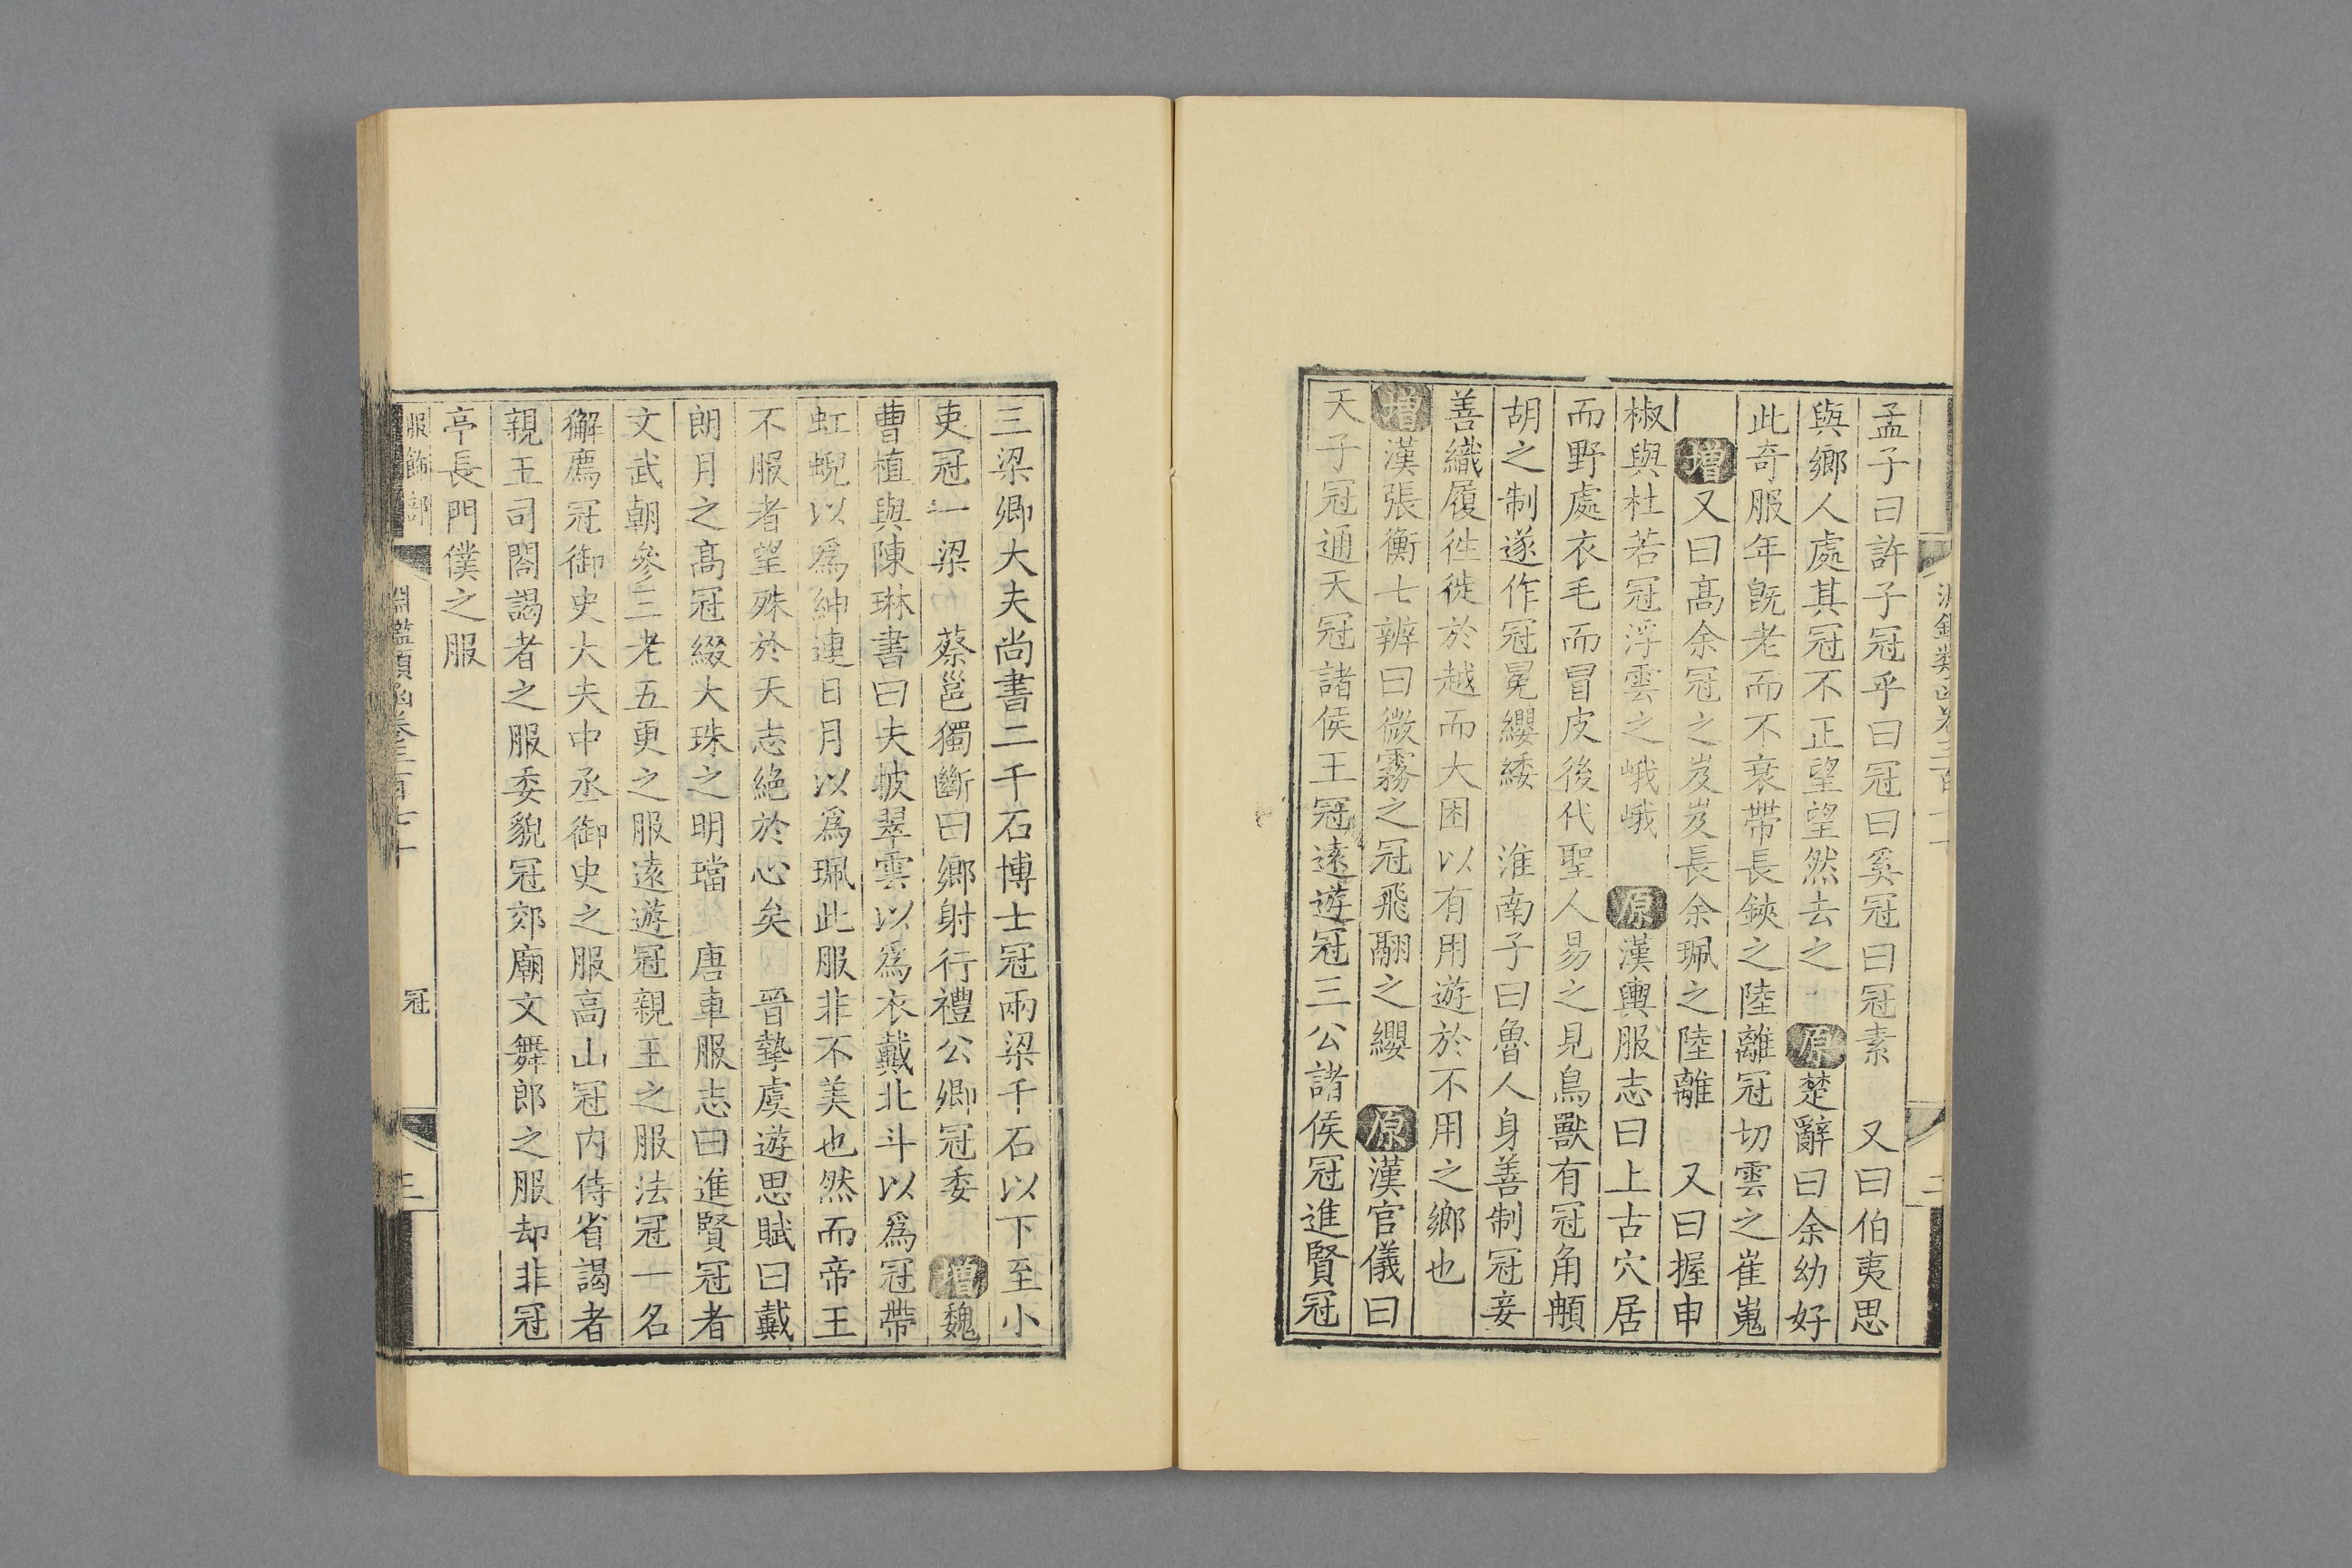 孟子曰許子冠乎曰冠曰奚冠曰冠素 又曰伯夷思
與鄉人處其冠不正望望然去之 原 楚辭曰余幼好
此奇服年旣老而不衰帶長鋏之陸離冠切雲之崔嵬
增 又曰髙余冠之岌岌長余珮之陸離 又曰握申
椒與杜若冠浮雲之峨峨 原 漢輿服志曰上古穴居
而野處衣毛而冒皮後代聖人易之見鳥獸有冠角頔
胡之制遂作冠冕纓緌 淮南子曰魯人身善制冠妾
善織履徃徙於越而大困以有用遊於不用之鄉也
增 漢張衡七辨曰微霧之冠飛翮之纓 原 漢官儀曰
天子冠通天冠諸侯王冠遠遊冠三公諸侯冠進賢冠
三梁卿大夫尚書二千石博士冠兩梁千石以下至小
吏冠一梁 蔡邕獨斷曰鄉射行禮公卿冠委 增 魏
曹植與陳琳書曰夫披翠雲以爲衣戴北斗以爲冠帶
虹蜺以爲紳連日月以爲珮此服非不美也然而帝王
不服者望殊於天志絶於心矣 晉摯虞遊思賦曰戴
朗月之髙冠綴大珠之明璫 唐車服志曰進賢冠者
文武朝參三老五更之服遠遊冠親王之服法冠一名
獬廌冠御史大夫中丞御史之服高山冠内侍省謁者
親王司閤謁者之服委貌冠郊廟文舞郎之服却非冠
亭長門僕之服
服飾部 淵鑑類函卷三百七十 冠 三